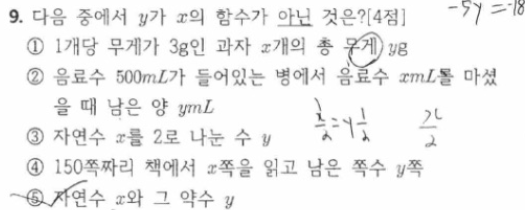 9. 다음 중에서 y가 x의 함수가 아닌 것은?[4점]
-5y=-18
① 1개당 무게가 3g인 과자 x개의 총 무게 yg
② 음료수 500mL가 들어있는 병에서 음료수 xmL를 마셨
을 때 남은 양 ymL
③ 자연수 x를 2로 나눈 수 y
④ 150쪽짜리 책에서 x쪽을 읽고 남은 쪽수 y쪽
⑤ 자연수 x와 그 약수 y